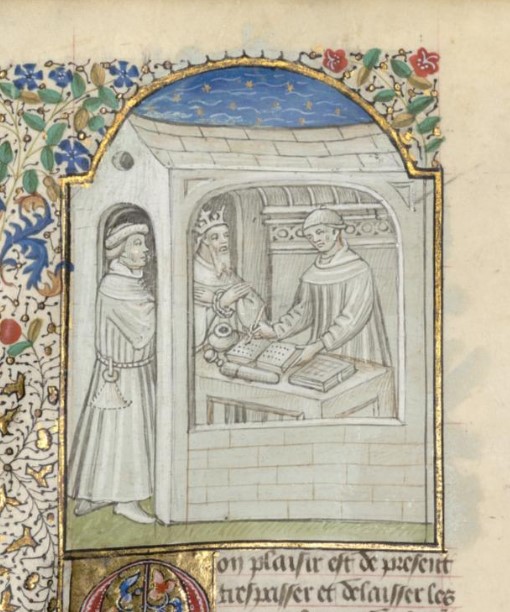 on plaisir est de present
trespasser et delaisser les